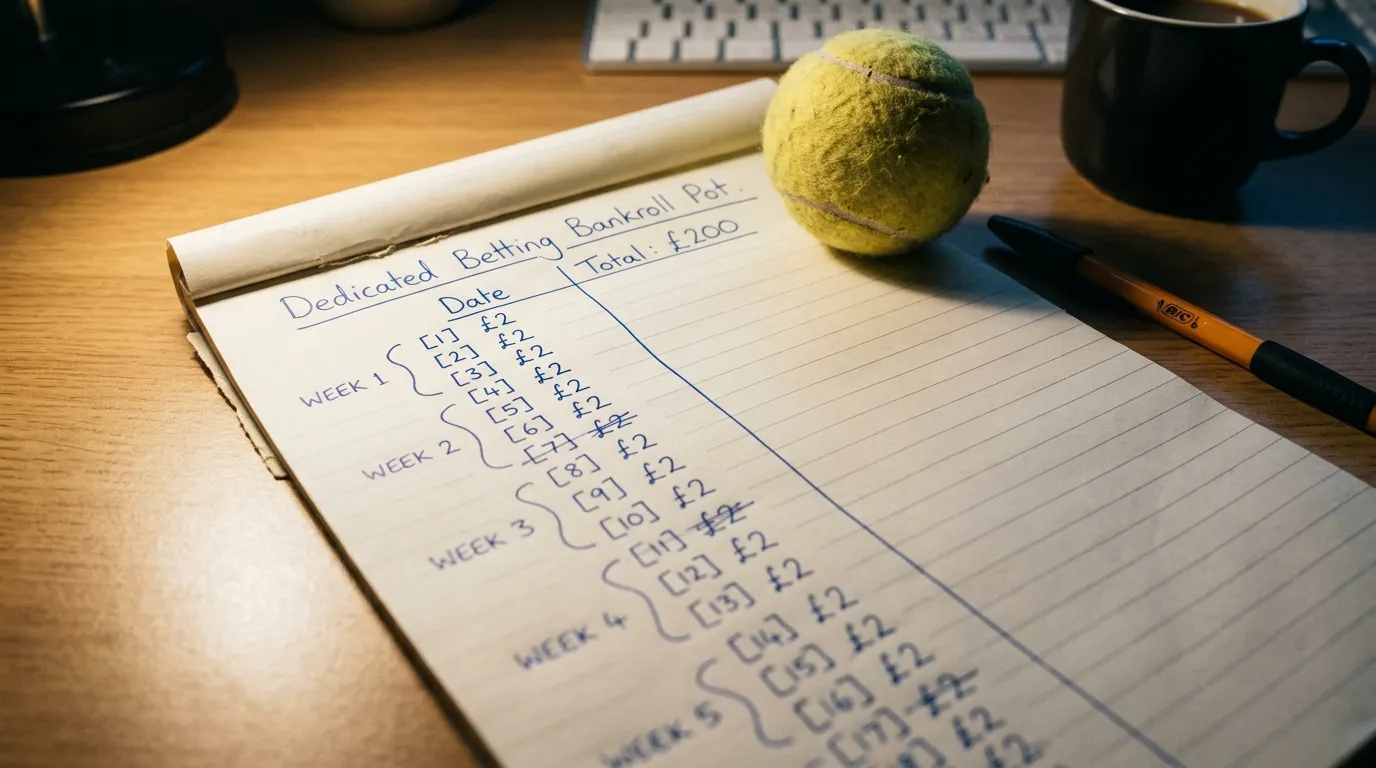 Dedicated Betting Bankroll Pot.
Date
Total: £200
WEEK 1
[1] £2
[2] £2
[3] £2
[4] £2
WEEK 2
[5] £2
[6] £2
[7] £2
WEEK 3
[8] £2
[9] £2
[10] £2
WEEK 4
[11] £2
[12] £2
[13] £2
WEEK 5
[14] £2
[15] £2
[16] £2
[17] £2
£2
£2
BIC